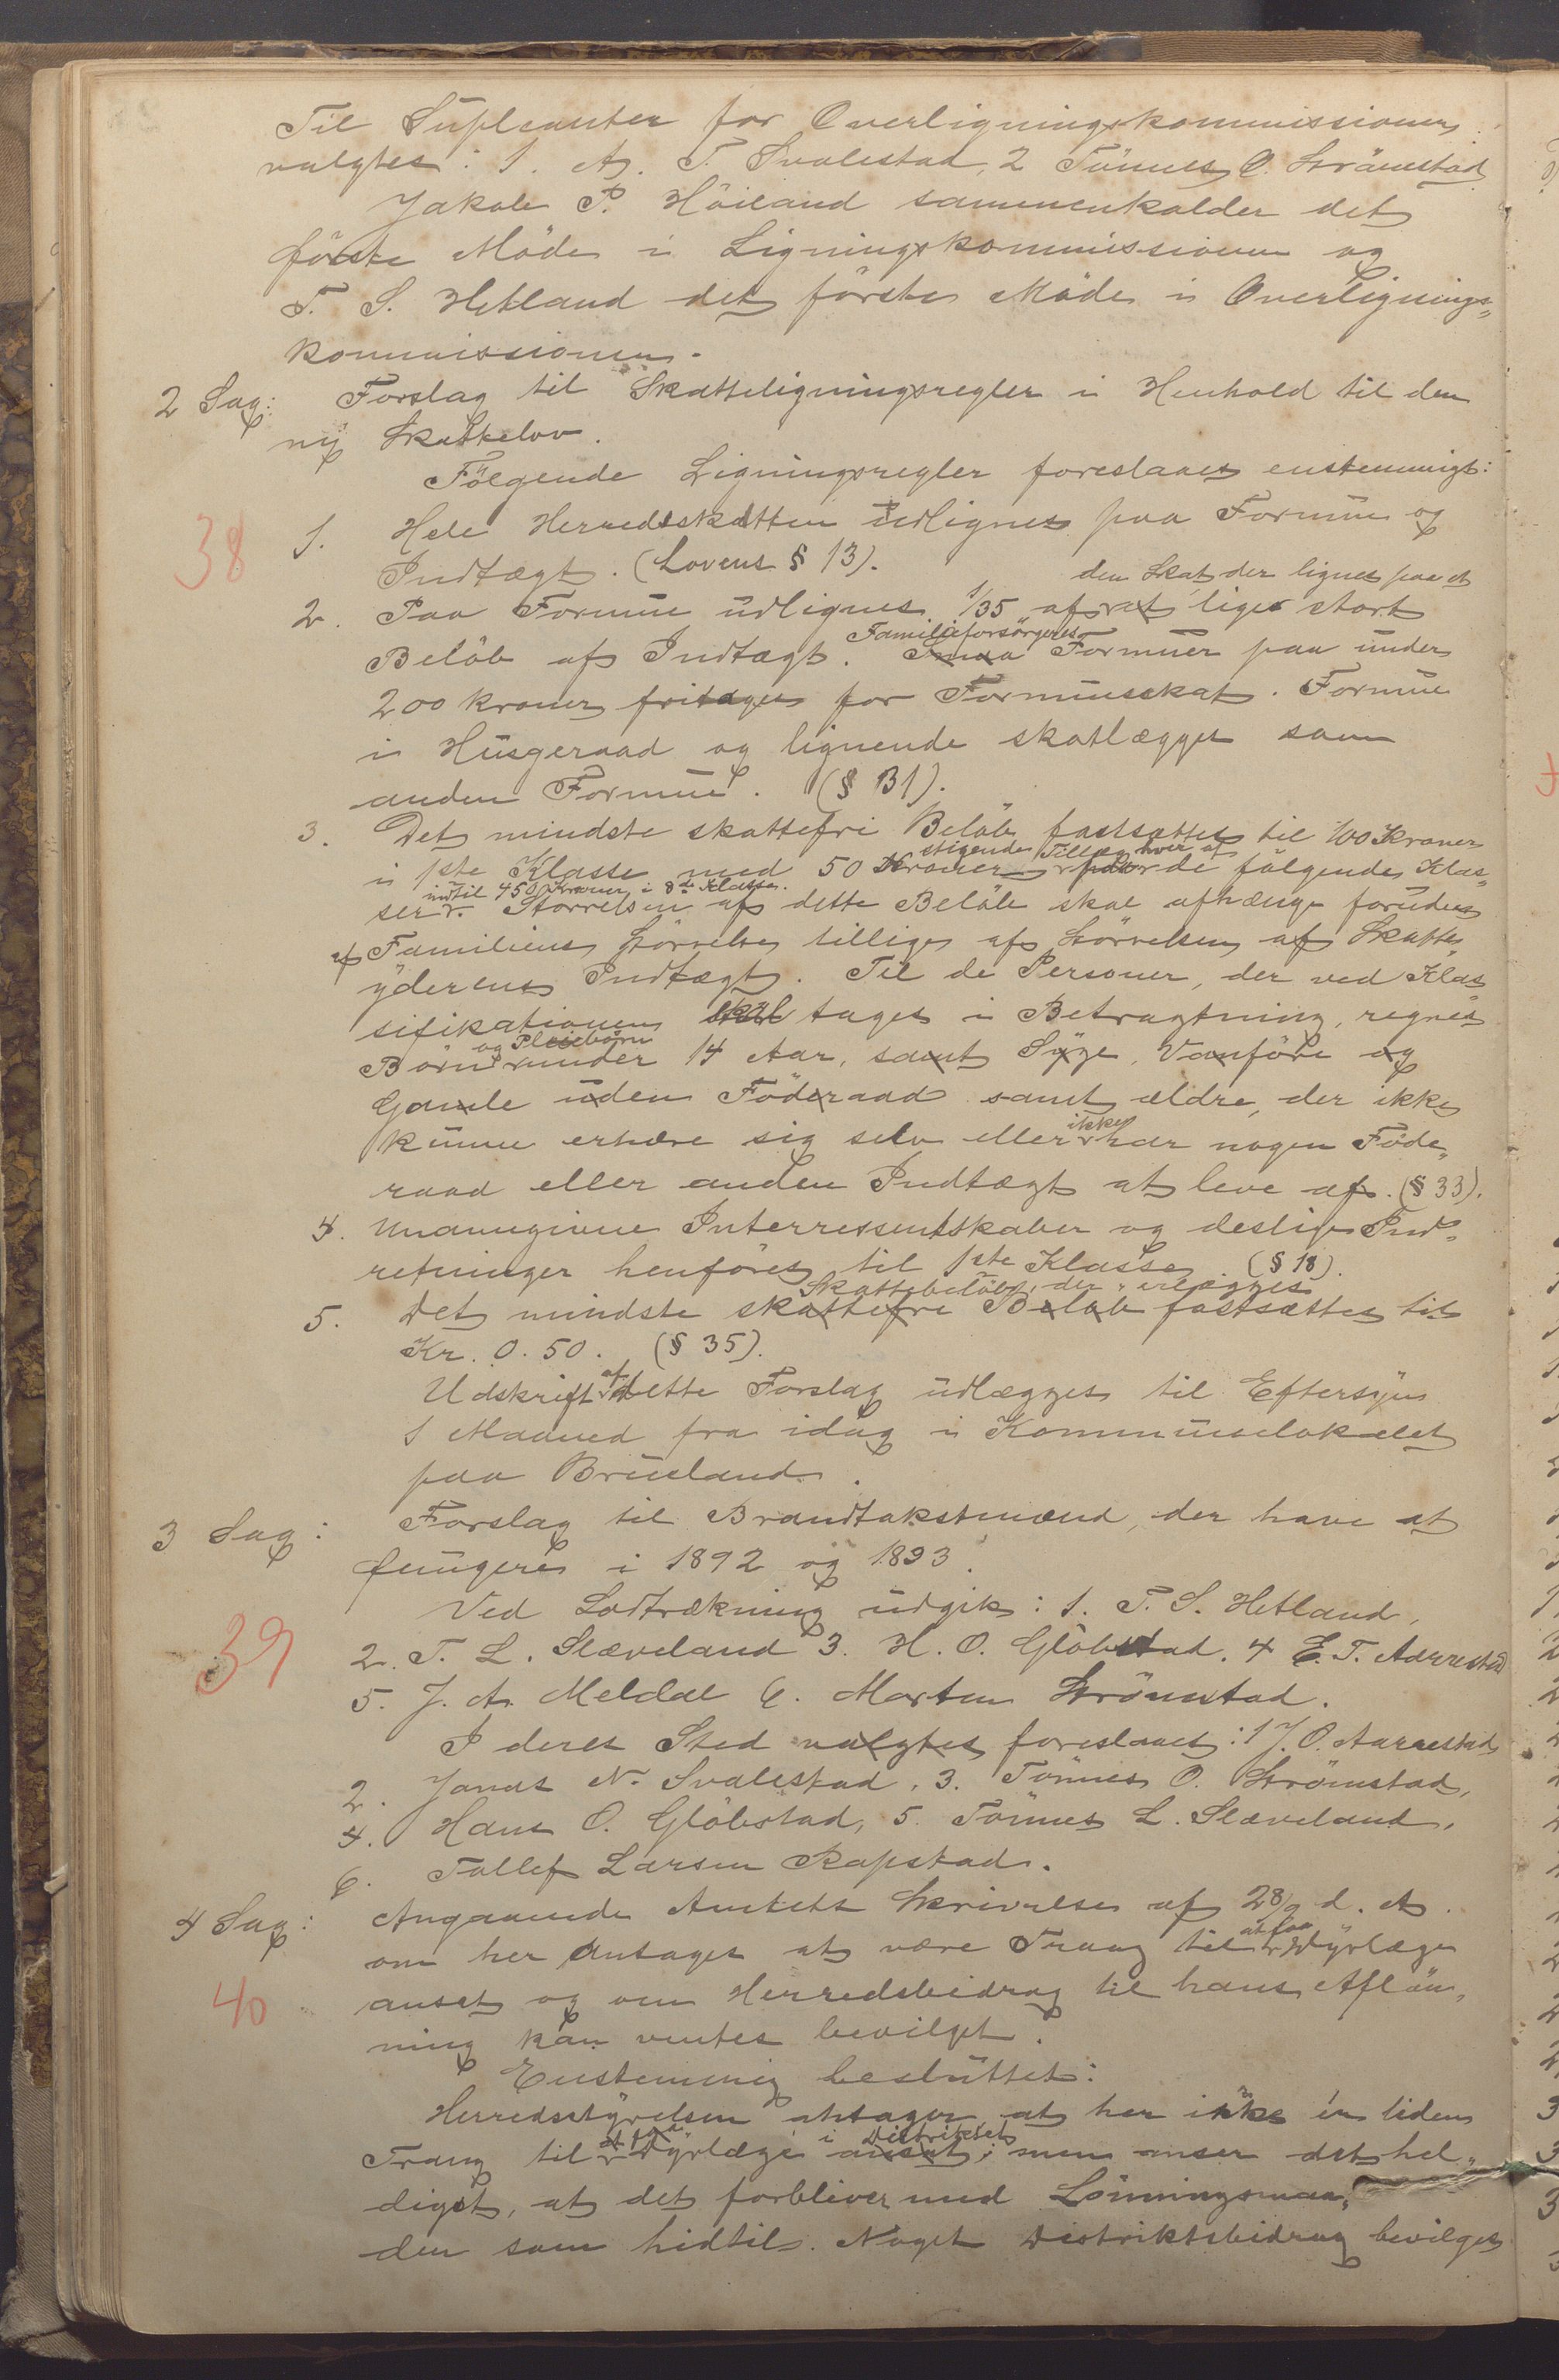 Til Supleanter for Overligningskommissionen
valgtes: 1. A. T. Svalestad, 2 Tönnes O. Strömstad
Jakob P. Höiland sammenkalder det
förste Möde i Ligningskommissionen og
T. S. Hetland det förste Möde i Overlignings-
kommissionen.
2 Sag: Forslag til Skatteligningsregler i Henhold til den
ny Skattelov.
Fölgende Ligningsregler foreslaaes enstemmigt:
38 1. Hele Herredsskatten udlignes paa Formue og
Indtægt. (Lovens § 13).
den Skat der lignes paa et
2. Paa Formue udlignes 1/35 af et lige stort
Familieforsörgeres
Belöb af Indtægt. Smaa Formuer paa under
200 kroner fritages for Formuesskat. Formue
i Husgeraad og lignende skatlægges som
anden Formue. (§ 31).
3. Det mindste skattefri Belöb fastsættes til 100 Kroner
stigende Tillæg hver af
i 1ste Klasse med 50 Kroner for de fölgende Klas-
indtil 450 Kroner i 8de Klasse.
ser. Störrelsen af dette Belöb skal afhænge foruden
af Familiens Störrelse tillige af Störrelsen af Skatte
yderens Indtægt. Til de Personer, der ved Klas
sifikationen skal tages i Betragtning, regnes
og Pleiebörn
Börn under 14 Aar, samt Syge, Vanföre og
Gamle uden Föderaad samt ældre, der ikke
ikke
kunne erhære sig selv eller har nogen Föde-
raad eller anden Indtægt at leve af. (§ 33).
4. Unavngivne Interressentskaber og deslige Ind-
retninger henföres til 1ste Klasse. (§ 18).
Skattebelöb, der erlægges
5. Det mindste skattefri Belöb fastsættes til
Kr. 0.50. (§ 35).
af
Udskrift dette Forslag udlægges til Eftersyn
1 Maaned fra idag i Kommunelokalet
paa Brueland.
3 Sag: Forslag til Brandtakstmænd, der have at
fungere i 1892 og 1893.
Ved Lodtrækning udgik: 1. T. S. Hetland,
39 2. T. L. Slæveland 3. H. O. Glöbstad. 4 E. T. Aarrestad
5. J. A. Meldal 6. Morten Strömstad.
I deres Sted valgtes foreslaaes: 1 J. O. Aarrestad
2. Jonas N. Svalestad, 3. Tönnes O. Strömstad,
4. Hans O. Glöbstad, 5. Tönnes L. Slæveland,
6. Tollef Larsen Rapstad.
4 Sag: Angaaende Amtets Skrivelse af 28/9 d. A.
at faa
om her antages at være Trang til Dyrlæge
40 ansat og om Herredsbidrag til hans Aflön-
ning kan ventes bevilget.
Enstemmig besluttet:
Herredsstyrelsen antager at her ikke er liden
at faa i Distriktet
Trang til Dyrlæge ansat; men anser det hel-
digst, at det forbliver med Lönningsmaa-
den som hidtil. Noget Distriktsbidrag bevilges